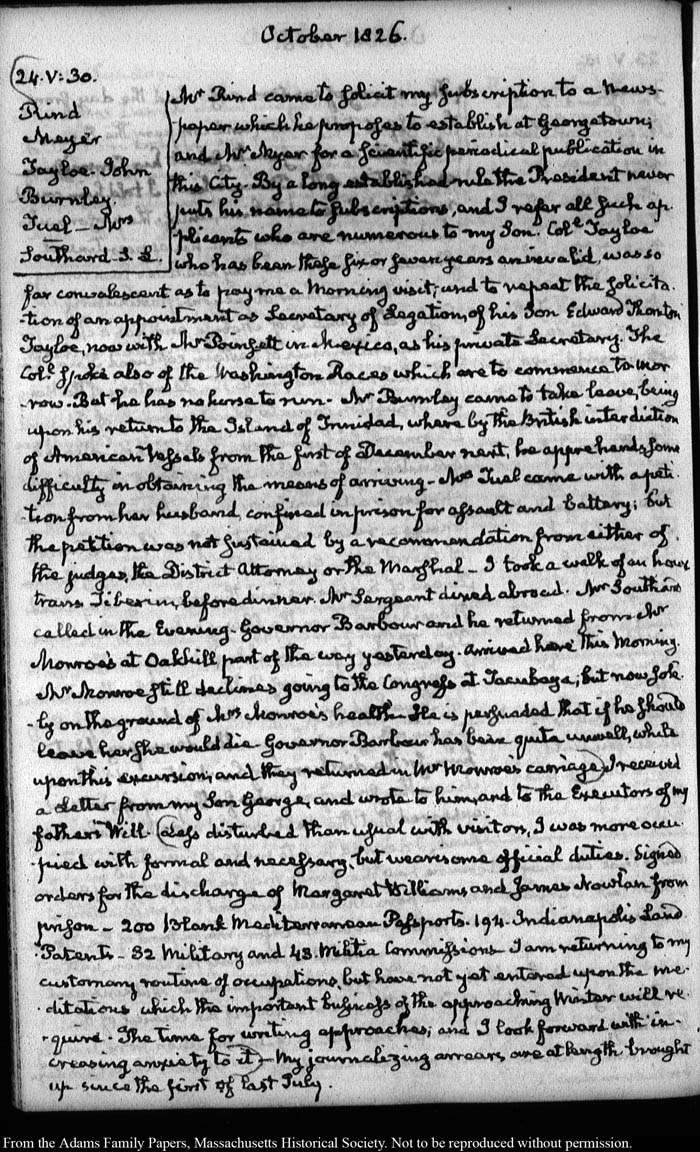 October 1826.
24. V:30.
Rind
Meyer
Tayloe. John
Burnley.
Tual — Mrs
Southard. S. L.
Mr Rind came to solicit my subscription to a News-
paper which he proposes to establish at Georgetown;
and Mr Myer for a scientific periodical publication in
this City. By a long established rule the President never
puts his name to subscriptions, and I refer all such ap-
plicants who are numerous to my Son. Coll Tayloe
who has been these six or seven years an invalid, was so
far convalescent as to pay me a Morning visit; and to repeat the solicita-
-tion of an appointment as Secretary of Legation, of his Son Edward Thornton
Tayloe, now with Mr Poinsett in Mexico, as his private Secretary. The
Coll spoke also of the Washington Races which are to commence to-mor
-row. But he has no horse to run. Mr Burnley came to take leave, being
upon his return to the Island of Trinidad, where by the British interdiction
of American Vessels from the first of December next, he apprehends some
difficulty in obtaining the means of arriving — Mrs Tual came with a peti-
-tion from her husband, confined in prison for assault and battery; but
the petition was not sustained by a recommendation from either of
the judges, the District Attorney or the Marshal — I took a walk of an hour
trans Tiberim, before dinner. Mr Sergeant dined abroad. Mr Southard
called in the Evening. Governor Barbour and he returned from Mr
Monroe's at Oakhill part of the way yesterday. Arrived here this Morning.
Mr Monroe still declines going to the Congress at Tacubaya; but now sole-
-ly on the ground of Mrs Monroe's health. He is persuaded that if he should
leave her she would die. Governor Barbour has been quite unwell, while
upon this excursion; and they returned in Mr Monroe's carriage. I received
a Letter from my Son George, and wrote to him, and to the Executors of my
father's Will. Less disturbed than usual with visitors, I was more occu-
-pied with formal and necessary, but wearisome official duties. Signed
orders for the discharge of Margaret Williams, and James Nowlan from
prison — 200 blank Mediterranean Passports. 194. Indianapolis Land
Patents — 32 Military and 43. Militia Commissions. I am returning to my
customary routine of occupations, but have not yet entered upon the me-
-ditations which the important business of the approaching Winter will re-
-quire. The time for writing approaches; and I look forward with in-
creasing anxiety to it — My journalizing arrears, are at length brought
up since the first of last July.
From the Adams Family Papers, Massachusetts Historical Society. Not to be reproduced without permission.